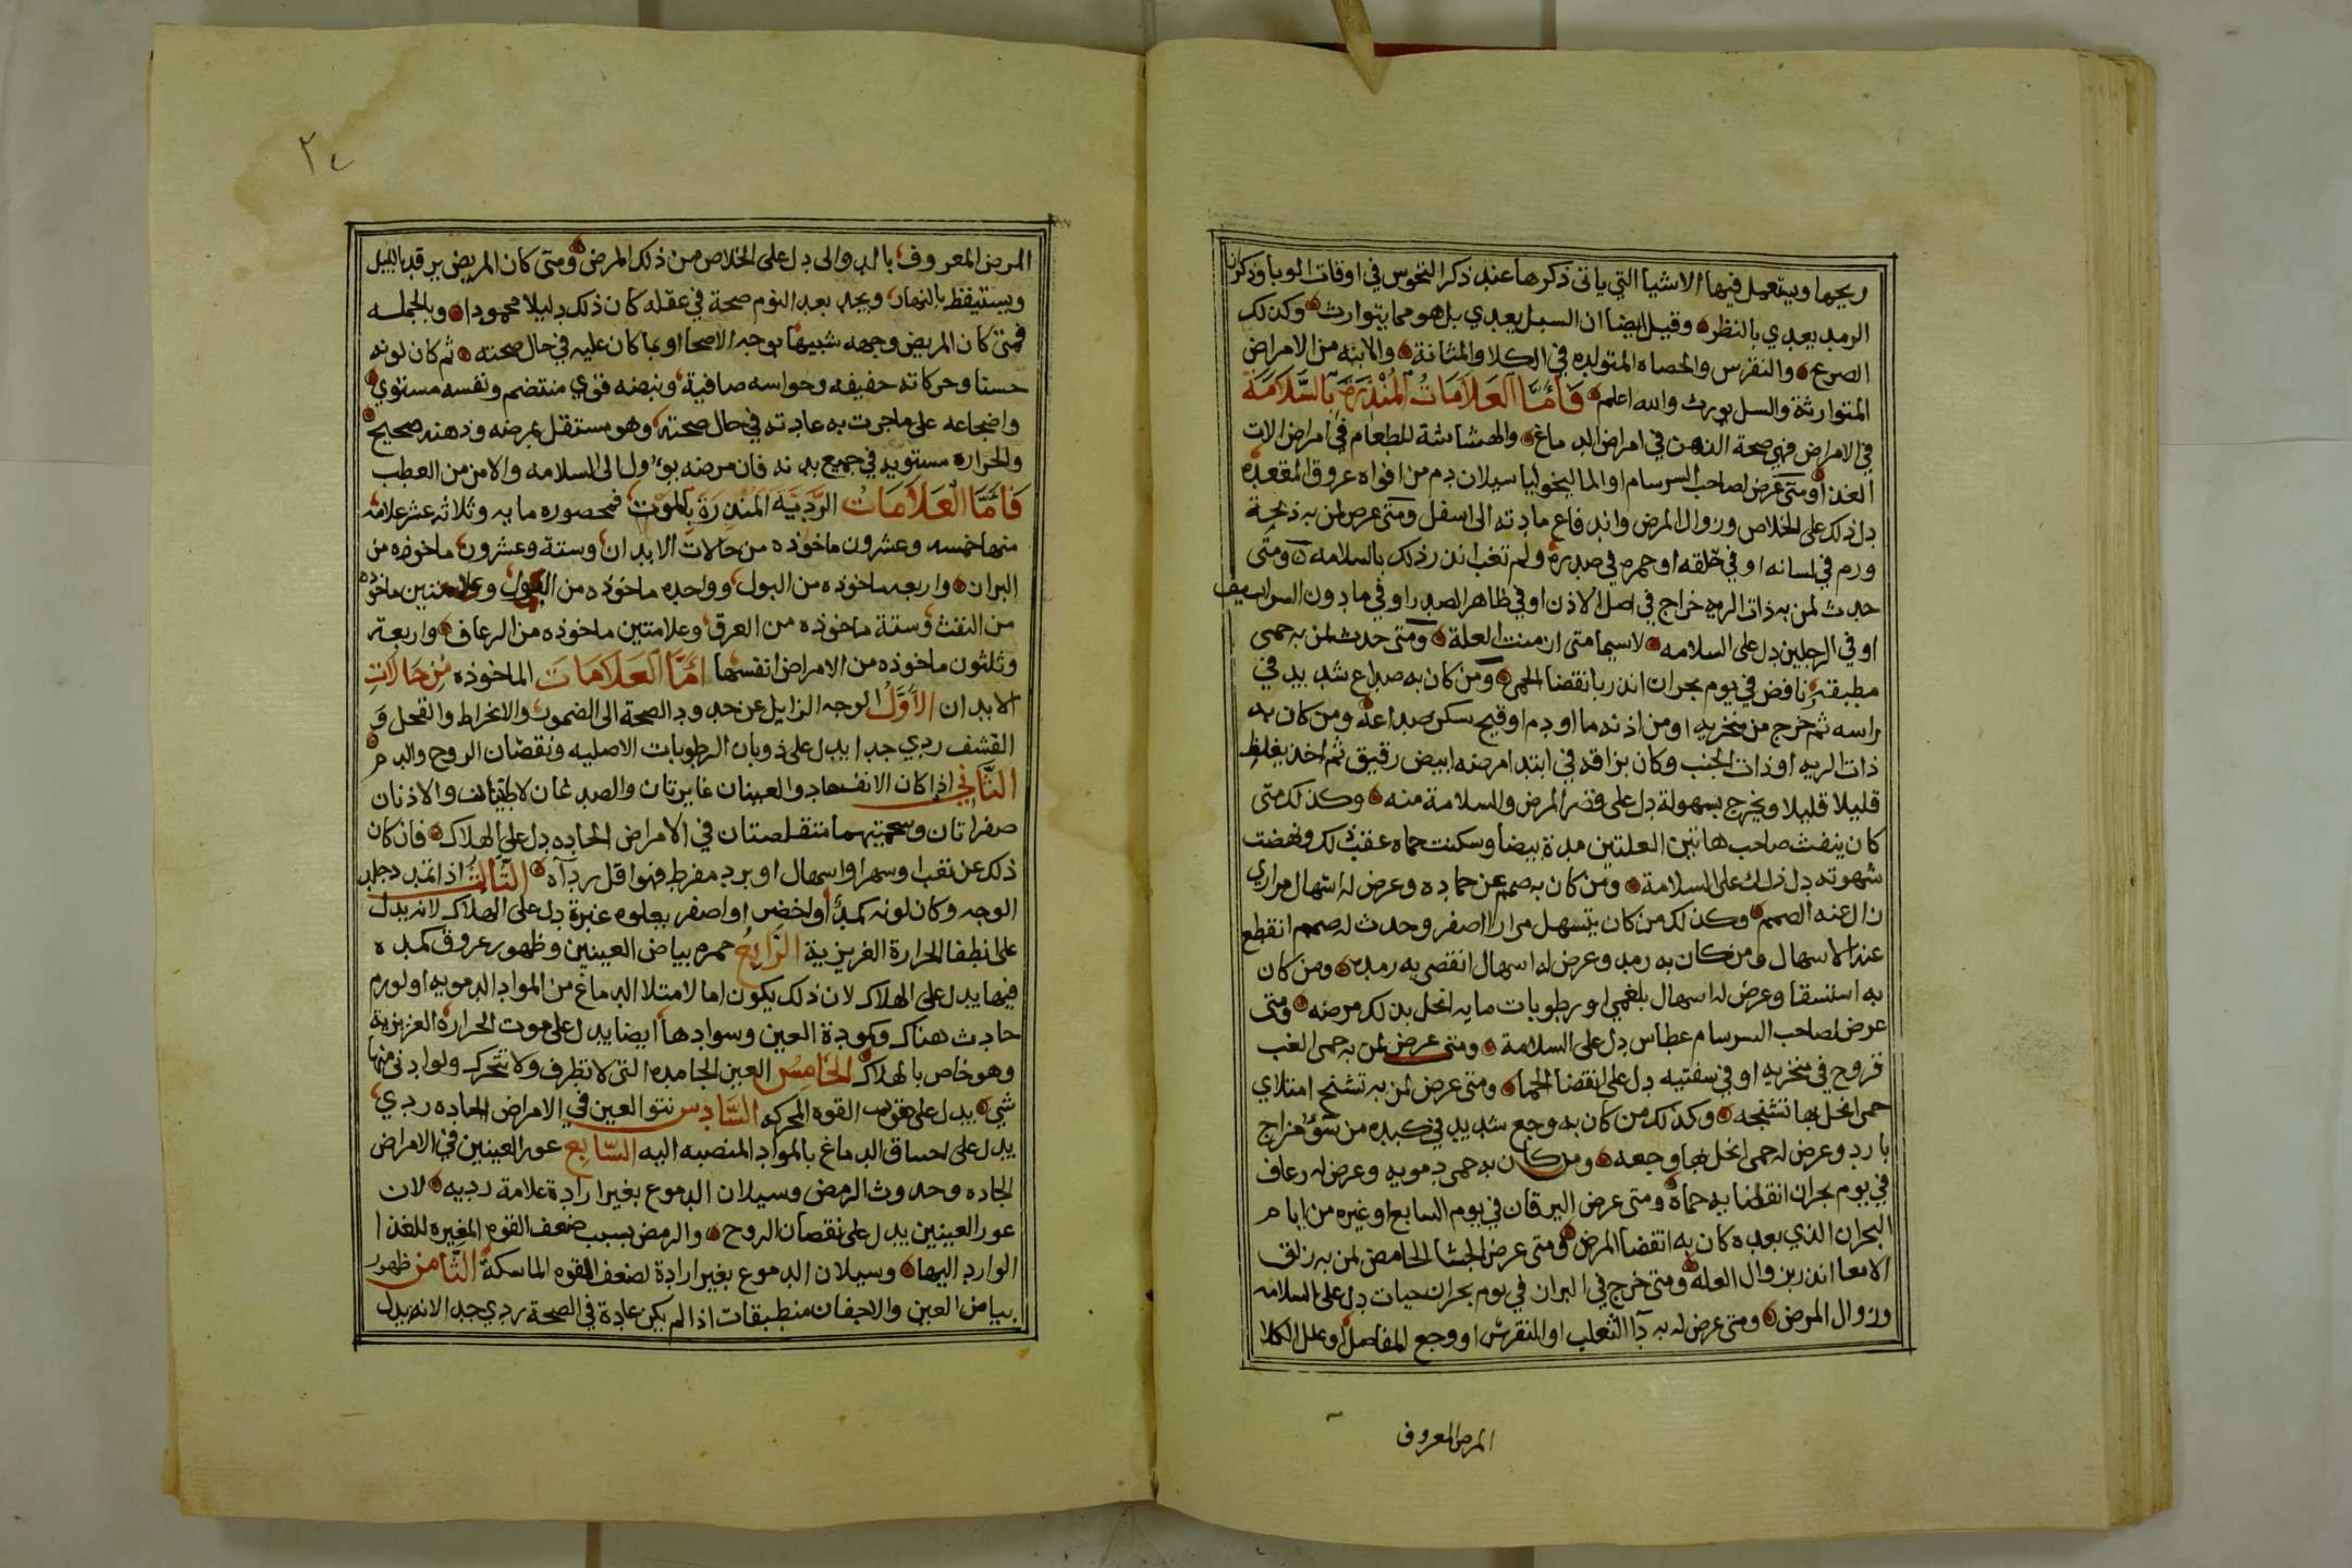 ريحها ويستعمل فيها الاشيا التي ياتى ذكرها عند ذكر التحوس في اوقات الوبا وذكر ان
الرمد يعدي بالنظر وقيل ايضا ان السبل يعدي بل هو مما يتوارث وكذلك
الصرع والنقرس والحصاه المتولده في الكلا والمثانة والابنه من الامراض
المتوارثة والسل يورث والله اعلم فَأَمَّا العَلاَمَاتُ المُنْذِرَة بِالسَّلاَمَة
في الامراض فهي صحة الذهن في امراض الدماغ والهشاشة للطعام في امراض الات
الغذا ومتى عرض لصاحب السرسام او الماليخوليا سيلان دم من افواه عروق المقعده
دل ذلك على الخلاص وزوال المرض واندفاع مادته الى اسفل ومتى عرض لمن به ذبحة
ورم في لسانه او في حلقه او حمره في صدره ولم تغب انذر ذلك بالسلامه ومتى
حدث لمن به ذات الريه خراج في اصل الاذن او في ظاهر الصدر او في مادون السراسيف
او في الرجلين دل على السلامه لاسيما متى ازمنت العلة ومتى حدث لمن به حمى
مطبقة نافض في يوم بحران انذر بانقضا الحمى ومن كان به صداع شديد في
راسه ثم خرج من منخريه او من اذنه ما او دم او قيح سكن صداعه ومن كان به
ذات الريه او ذات الجنب وكان بزاقه في ابتدا مرضه ابيض رقيق ثم اخذ يغلظ
قليلا قليلا ويخرج بسهولة دل على قصر المرض والسلامة منه وكذلك متى
كان ينفث صاحب هاتين العلتين مدة بيضا وسكنت حماه عقب ذلك ونهضت
شهوته دل ذلك على السلامة ومن كان به صمم عن حماده وعرض له اسهال مراري
زال عنه الصمم وكذلك من كان يتسهل مرارا اصفر وحدث له صمم انقطع
عنه الاسهال ومن كان به رمد وعرض له اسهال انقضى به رمده ومن كان
به استسقا وعرض له اسهال بلغمي او رطوبات مايه انحل بذلك مرضه ومتى
عرض لصاحب السرسام عطاس دل على السلامة ومتى عرض لمن به حمى الغب
قروح في منخريه او في سفتيه دل على انقضا الحما ومتى عرض لمن به تشنج امتلاي
حمى انحل بها تشنجه وكذلك من كان به وجع شديد في كبده من سؤ مزاج
بارد وعرض له حمى انحل بها وجعه ومن كان به حمى دمويه وعرض له رعاف
في يوم بحران انقضا به حماه ومتى عرض اليرقان في يوم السابع او غيره من ايام
البحران الذي بعده كان به انقضا المرض ومتى عرض الجشا الحامض لمن به زلق
الامعا انذر بزوال العله ومتى خرج في البران في يوم بحران حيات دل على السلامه
وزوال المرض ومتى عرض له به دآ الثعلب او النقرس او وجع المفاصل او علل الكلا
المرض المعروف
٢٧
المرض المعروف بالدوالى دل على الخلاص من ذلك المرض ومتى كان المريض يرقد بالليل
ويستيقظ بالنهار ويجد بعد النوم صحة في عقله كان ذلك دليلا محمودا وبالجمله
فمتى كان المريض وجهه شبيها بوجه الاصحا او بما كان عليه في حال صحته ثم كان لونه
حسنا وحركاته خفيفه وحواسه صافية ونبضه قوي منتضم ونفسه مستوي
واضجاعه على ماجرت به عادته في حال صحته وهو مستقل بمرضه وذهنه صحيح
والحراره مستويه في جميع بدنه فان مرضه يؤول الى السلامه والامن من العطب
فَأَمَّا العَلاَمَاتُ الرَّدِيَّة المُنْذِرَة بِالموْت فمحصوره مايه وثلاثة عشر علامه
منها خمسه وعشرون ماخوذه من حالات الابدان وستة وعشرون ماخوذه من
البران واربعه ماخوذه من البول وواحده ماخوذه من القول وعلامتين ماخوذه
من النفث وستة ماخوذه من العرق وعلامتين ماخوذه من الرعاف واربعة
وثلثون ماخوذه من الامراض انفسها امَّا العَلاَمَات الماخوذه مِن حَالاَتِ
الابدان الاَوَّلُ الوجه الزايل عن حدود الصحة الى الضمور والانخراط والقحل و
القشف ردي جدا يدل على ذوبان الرطوبات الاصليه ونقصان الروح والدم
الثَّانِي اذا كان الانف حاد والعينان غايرتان والصدغان لاطيان والاذنان
صفراتان وشحمتيهما متقلصتان في الامراض الحاده دل على الهلاك فان كان
ذلك عن تعب او سهر او اسهال او برد مفرط فهو اقل ردآه الثَّالِثُ اذا تمدد جلد
الوجه وكان لونه كمدا او اخضر او اصفر يعلوه غبرة دل على الهلاك لانه يدل
على انطفا الحرارة الغريزية الرَّابِعُ حمره بياض العينين وظهور عروق كمده
فيها يدل على الهلاك لان ذلك يكون اما لامتلا الدماغ من المواد الدمويه او لورم
حادث هناك وكمودة العين وسوادها ايضا يدل على موت الحراره الغريزية
وهو خاص بالهلاك الخَامِسُ العين الجامده التى لا تطرف ولا تتحرك ولو ادنى منها
شي يدل على موت القوه المحركه السَّادِسُ نتو العين في الامراض الحاده ردي
يدل على احساق الدماغ بالمواد المنصبه اليه السَّابِع عور العينين في الامراض
الحاده وحدوث الرمض وسيلان الدموع بغير ارادة علامة رديه لان
عور العينين يدل على نقصان الروح والرمض بسبب ضعف القوه المغيره للغذا
الوارد اليها وسيلان الدموع بغير ارادة لضعف القوه الماسكة الثَّامِنُ ظهور
بياض العين والاجفان منطبقات اذا لم يكن عادة في الصحة ردي جدا لانه يدل